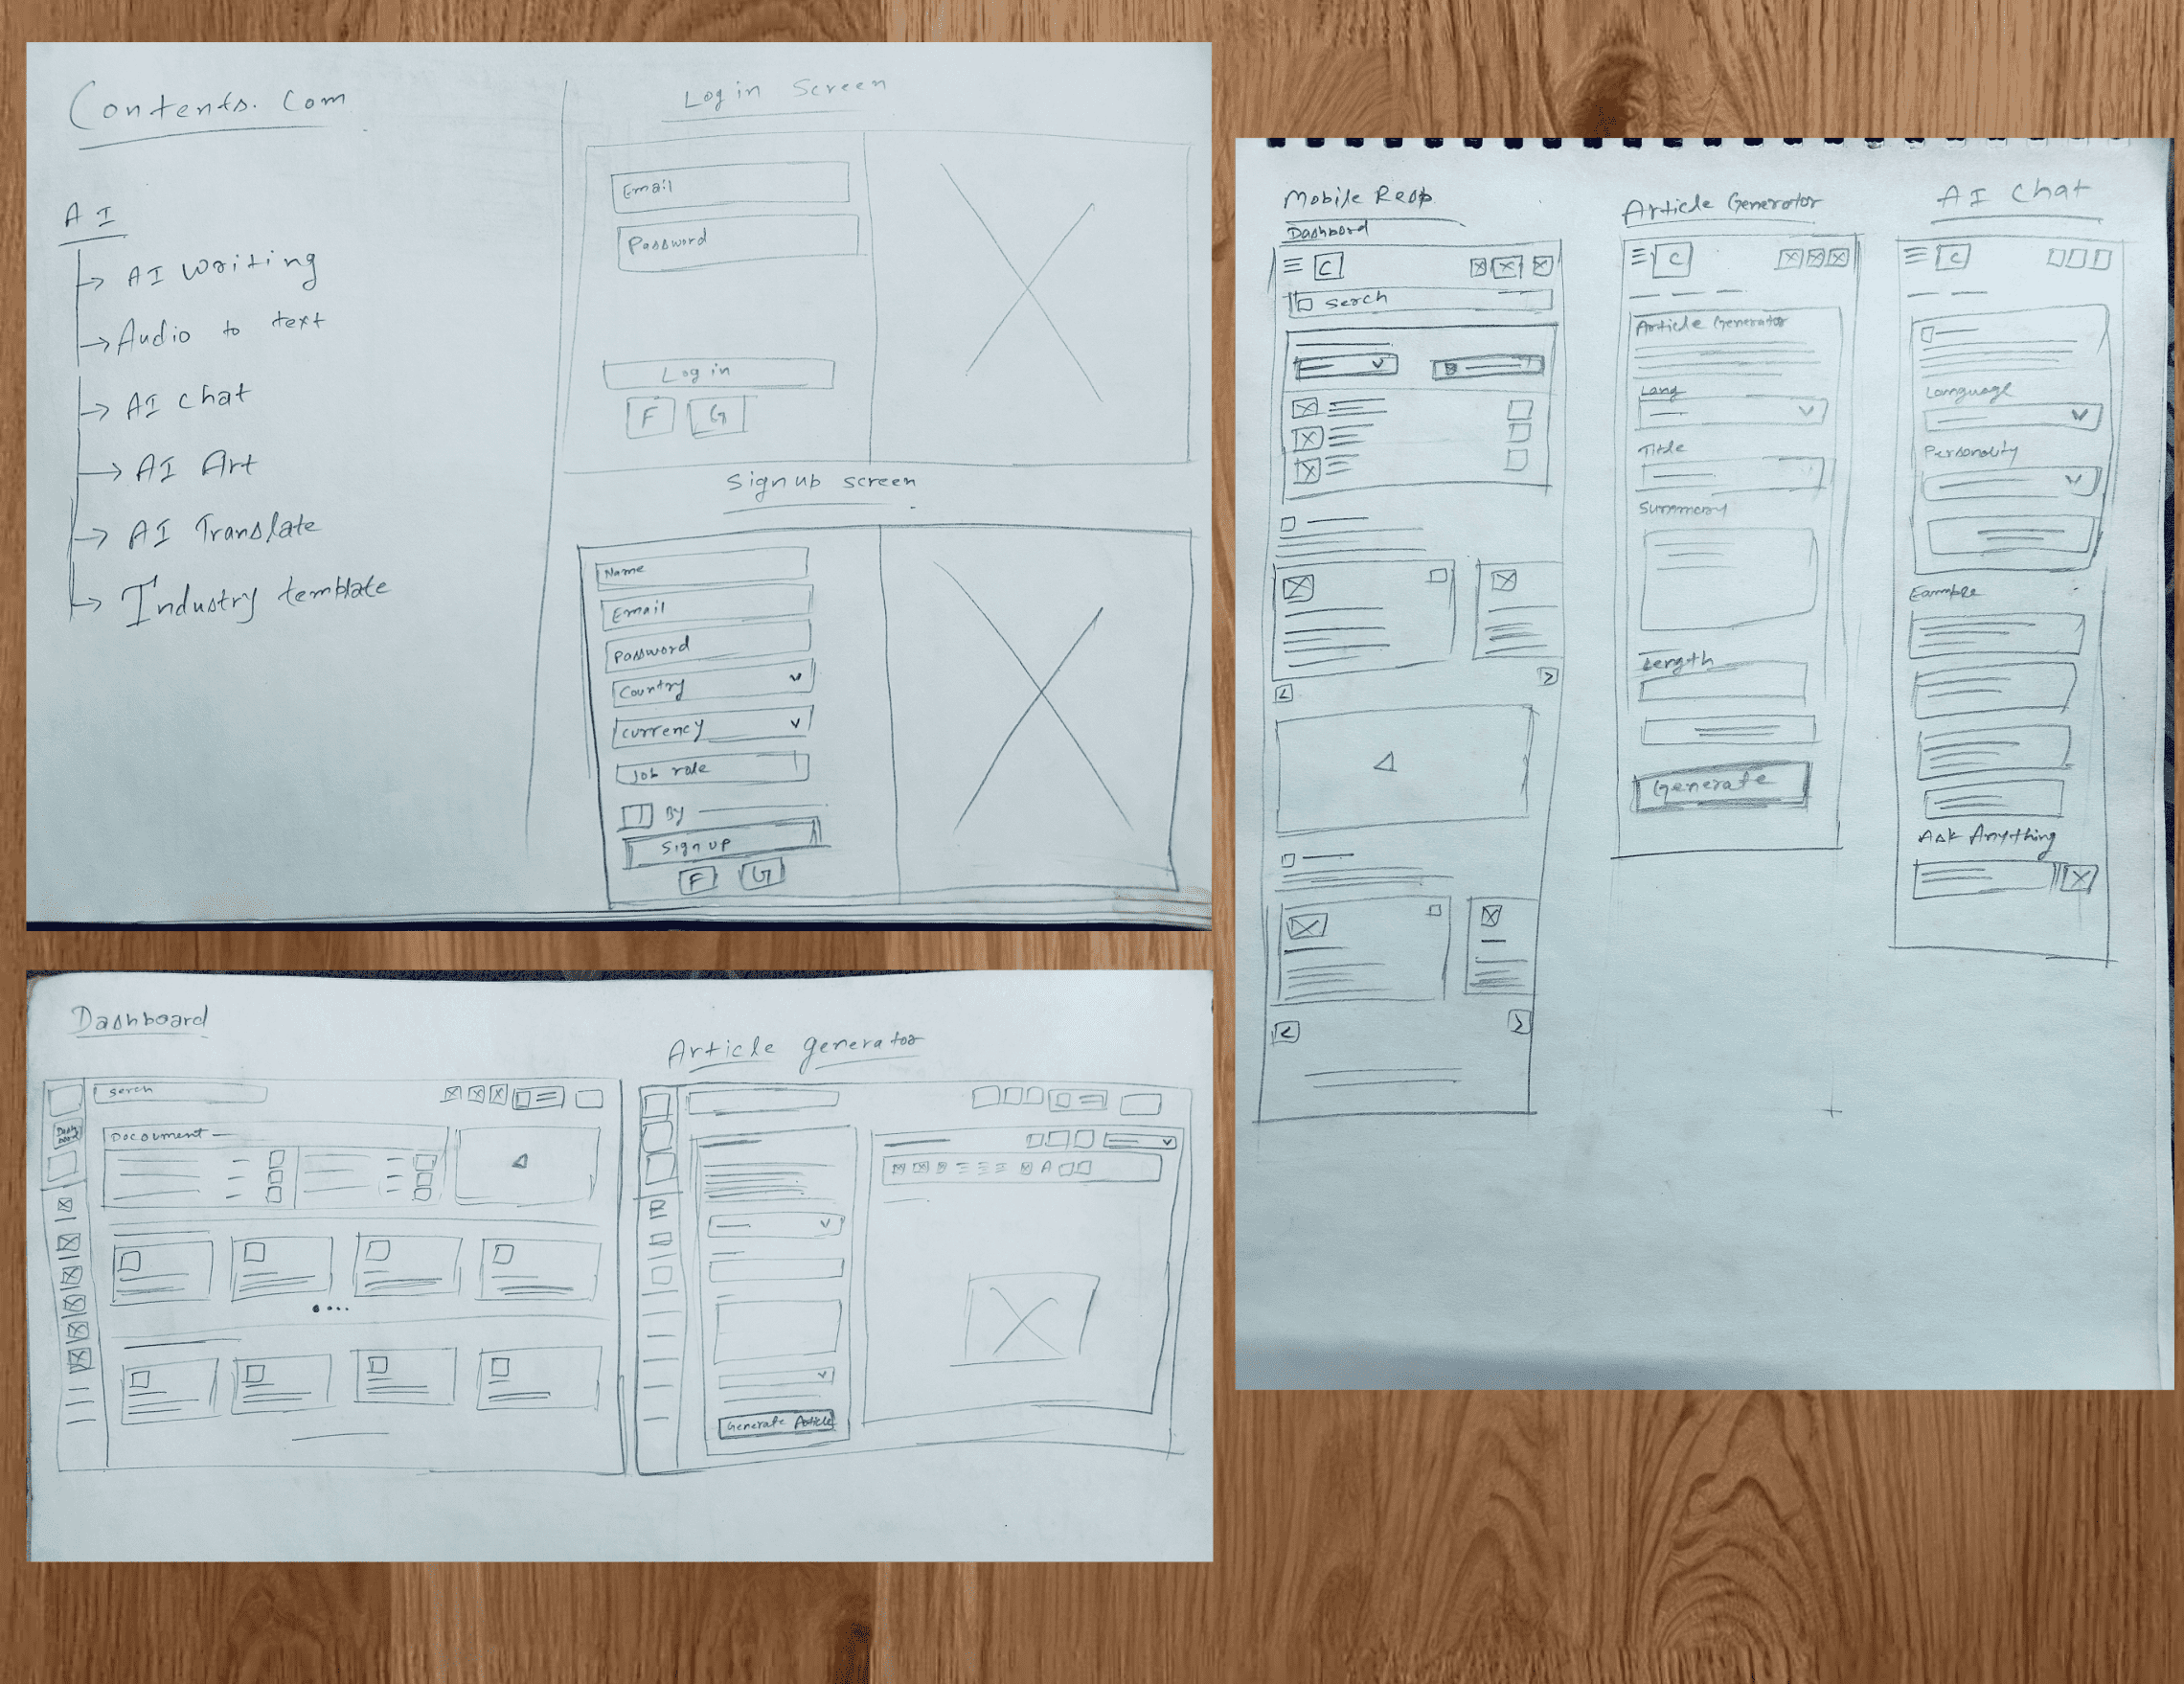 Contents.com
AI
AI Writing
Audio to text
AI chat
AI Art
AI Translate
Industry template
Log in Screen
Email
Password
Log in
F
G
Signup screen
Name
Email
Password
Country
currency
Job role
By
Sign up
F
G
Dashboard
Serch
Dash
bord
Docoument
Article generator
A
Generate Article
Mobile Resp
Dashbord
C
Serch
Article Generator
C
Article Generator
Lang
Title
Summery
Length
Generate
AI Chat
C
Language
Personality
Ask Anything